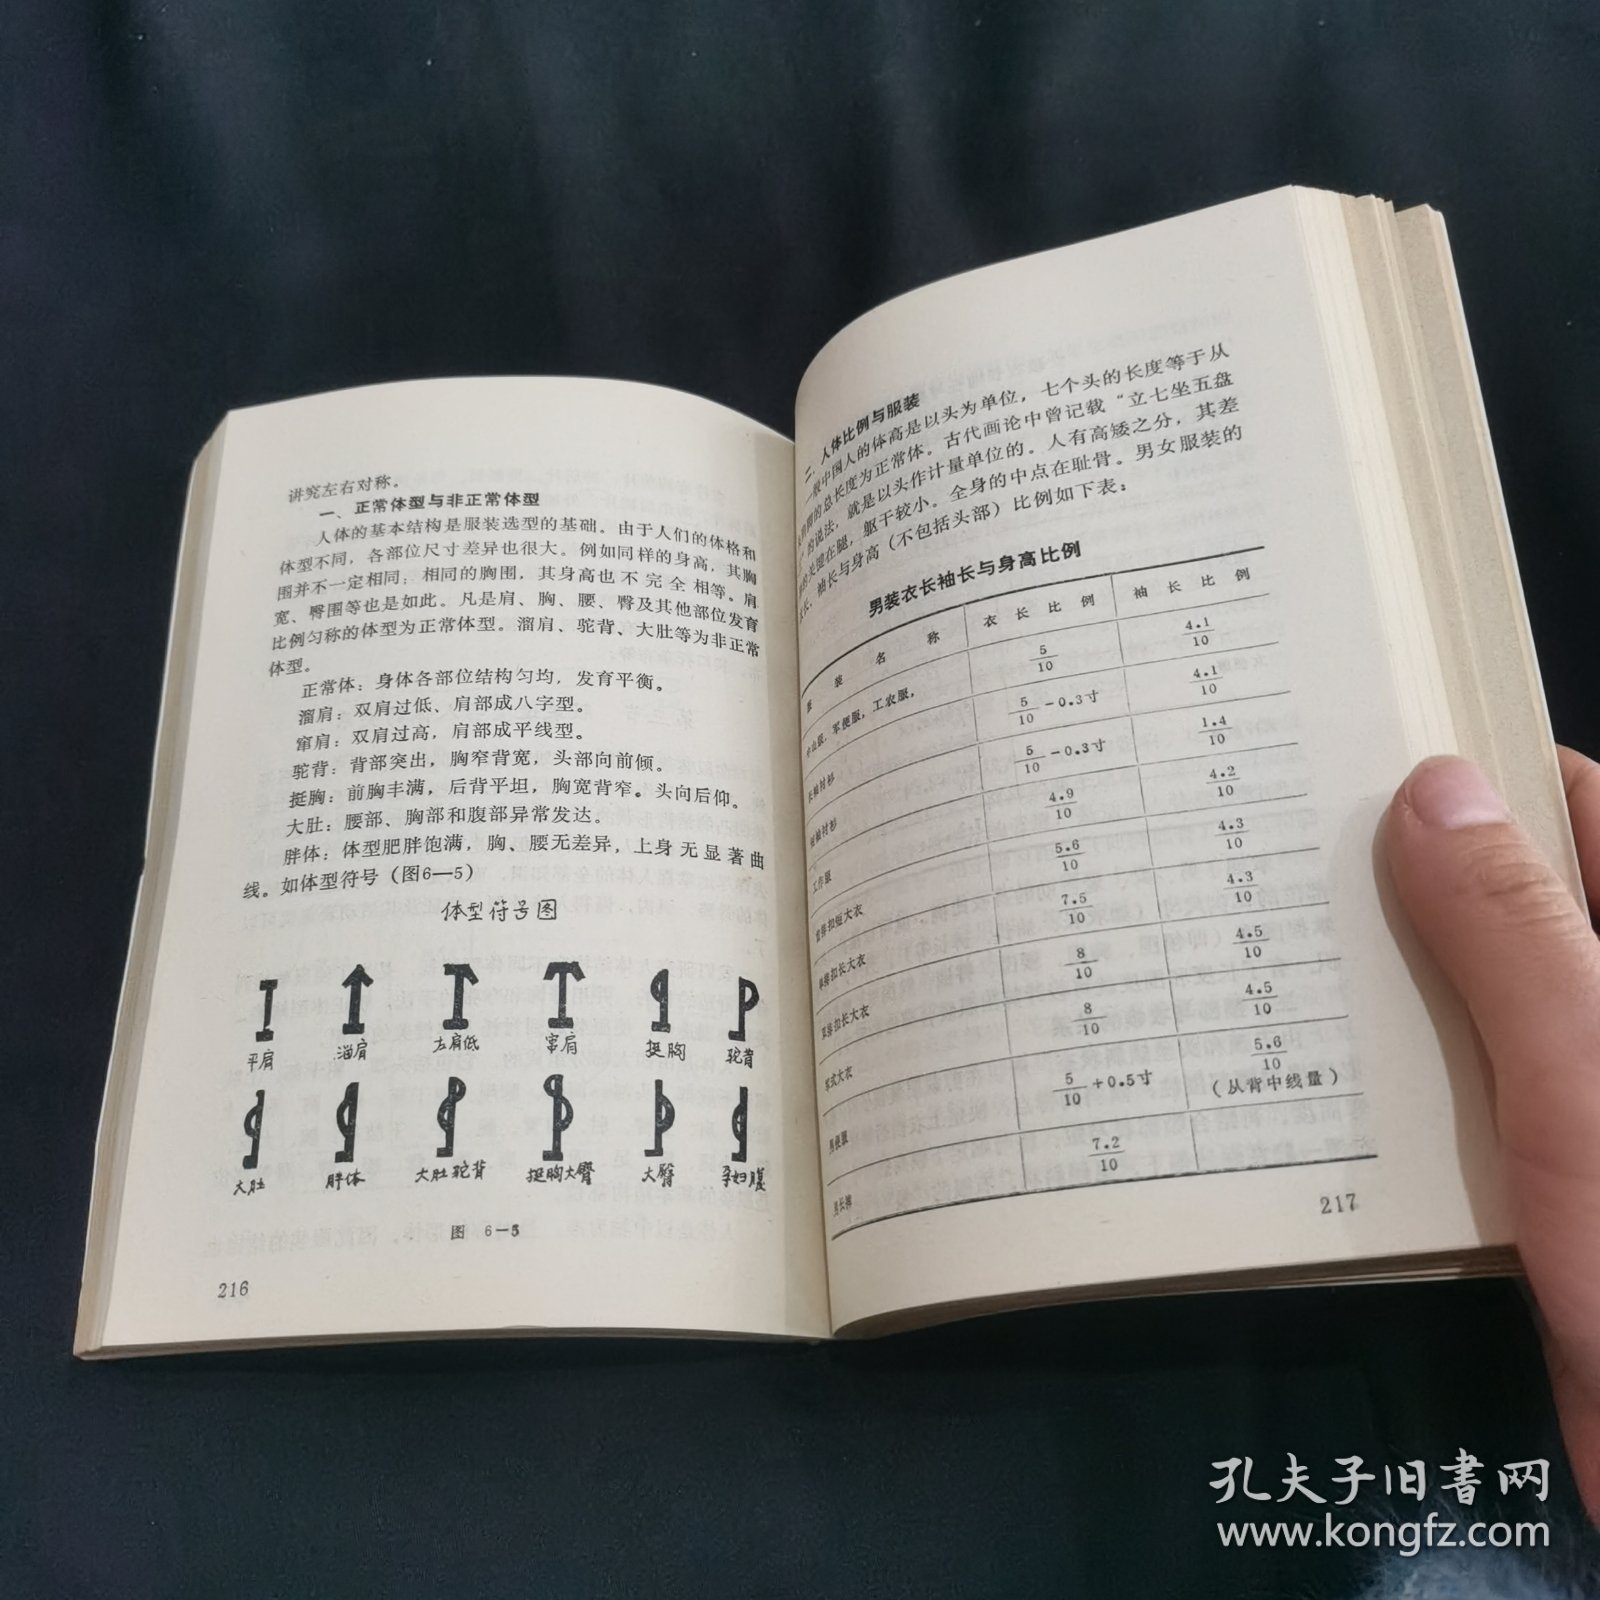 讲究左右对称。
一、正常体型与非正常体型
人体的基本结构是服装选型的基础。由于人们的体格和
体型不同，各部位尺寸差异也很大。例如同样的身高，其胸
围并不一定相同；相同的胸围，其身高也不完全相等。肩
宽、臀围等也是如此。凡是肩、胸、腰、臀及其他部位发育
比例匀称的体型为正常体型。溜肩、驼背、大肚等为非正常
体型。
正常体：身体各部位结构匀均，发育平衡。
溜肩：双肩过低、肩部成八字型。
窜肩：双肩过高，肩部成平线型。
驼背：背部突出，胸窄背宽，头部向前倾。
挺胸：前胸丰满，后背平坦，胸宽背窄。头向后仰。
大肚：腰部、胸部和腹部异常发达。
胖体：体型肥胖饱满，胸、腰无差异，上身无显著曲
线。如体型符号（图6—5）
体型符号图
平肩 溜肩 左肩低 窜肩 挺胸 驼背
大肚 胖体 大肚驼背 挺胸大臀 大臀 孕妇腹
图 6—5
216
二、人体比例与服装
一般中国人的体高是以头为单位，七个头的长度等于从
的总长度为正常体。古代画论中曾记载“立七坐五盘
”的说法，就是以头作计量单位的。人有高矮之分，其差
的关键在腿，躯干较小。全身的中点在耻骨。男女服装的
衣长、袖长与身高（不包括头部）比例如下表：
男装衣长袖长与身高比例
服装名称 衣长比例 袖长比例
中山服，军便服，工农服， 5/10 4.1/10
长袖衬衫 5/10－0.3寸 4.1/10
短袖衬衫 5/10－0.3寸 1.4/10
工作服 4.9/10 4.2/10
双排扣短大衣 5.6/10 4.3/10
单排扣长大衣 7.5/10 4.3/10
双排扣长大衣 8/10 4.5/10
军式大衣 8/10 4.5/10
男便服 5/10＋0.5寸 5.6/10（从背中线量）
男长裤 7.2/10
217
孔夫子旧书网
www.kongfz.com